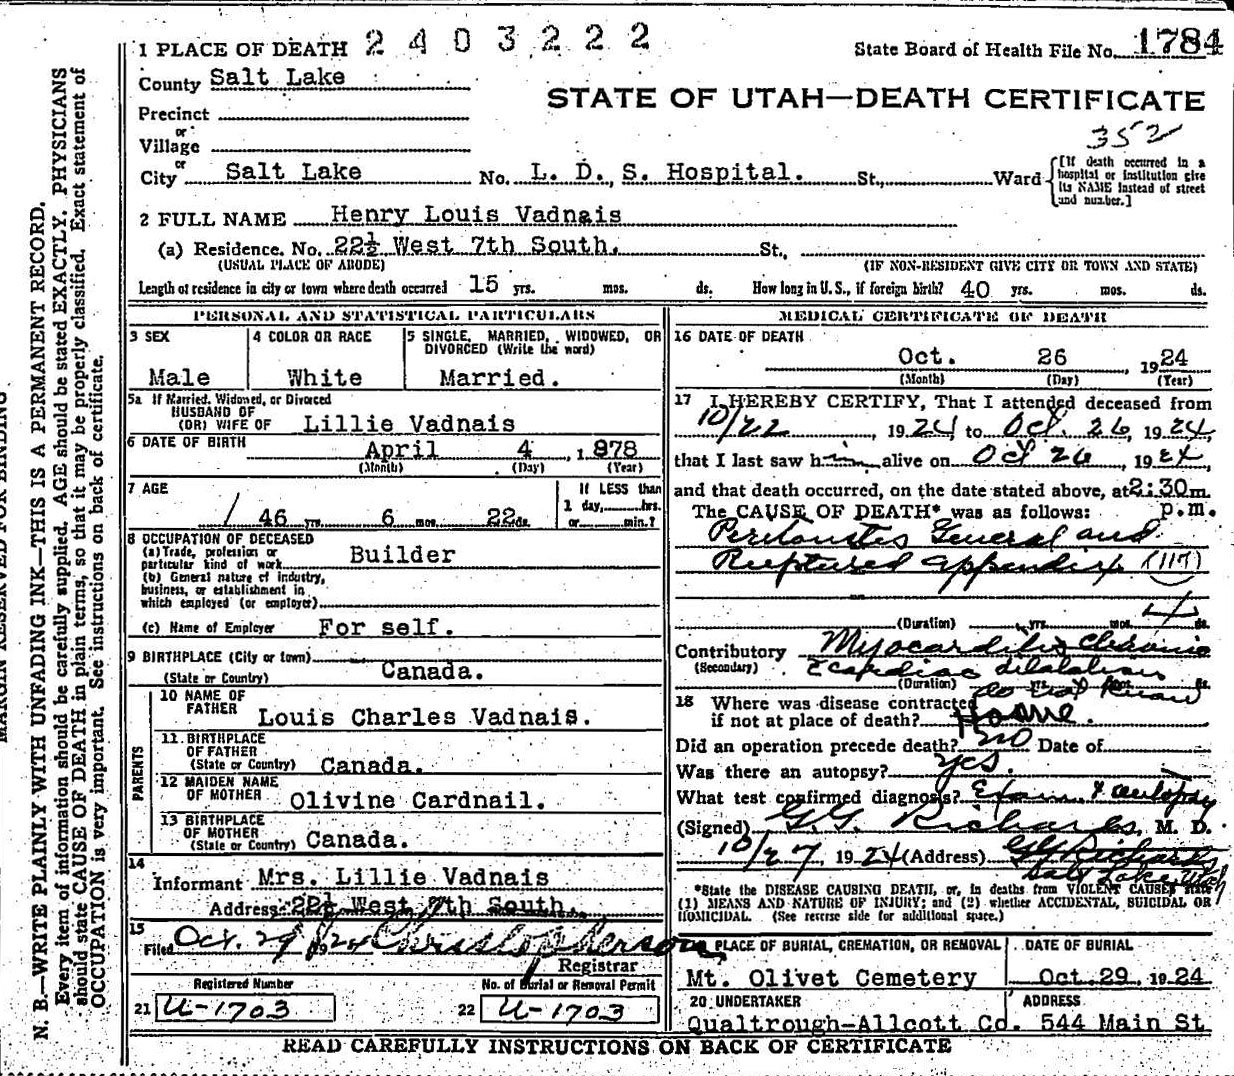 MARGIN RESERVED FOR BINDING
N. B.—WRITE PLAINLY WITH UNFADING INK—THIS IS A PERMANENT RECORD.
Every item of information should be carefully supplied. AGE should be stated EXACTLY. PHYSICIANS
should state CAUSE OF DEATH in plain terms, so that it may be properly classified. Exact statement of
OCCUPATION is very important. See instructions on back of certificate.
1 PLACE OF DEATH 2 4 0 3 2 2 2
State Board of Health File No. 1784
County Salt Lake
STATE OF UTAH—DEATH CERTIFICATE
Precinct
or
Village
352
or
City Salt Lake No. L. D. S. Hospital. St., Ward
[If death occurred in a
hospital or institution give
its NAME instead of street
and number.]
2 FULL NAME Henry Louis Vadnais
(a) Residence. No. 22½ West 7th South. St.,
(USUAL PLACE OF ABODE) (IF NON-RESIDENT GIVE CITY OR TOWN AND STATE)
Length of residence in city or town where death occurred 15 yrs. mos. ds. How long in U. S., if foreign birth? 40 yrs. mos. ds.
PERSONAL AND STATISTICAL PARTICULARS
3 SEX
Male
4 COLOR OR RACE
White
5 SINGLE, MARRIED, WIDOWED, OR
DIVORCED (Write the word)
Married.
5a If Married, Widowed, or Divorced
HUSBAND OF
(OR) WIFE OF Lillie Vadnais
6 DATE OF BIRTH
April 4 , 1878
(Month) (Day) (Year)
7 AGE
If LESS than
1 day, hrs.
46 yrs. 6 mos. 22 ds. or min.?
8 OCCUPATION OF DECEASED
(a) Trade, profession or
particular kind of work Builder
(b) General nature of industry,
business, or establishment in
which employed (or employer)
(c) Name of Employer For self.
9 BIRTHPLACE (City or town)
(State or Country) Canada.
PARENTS
10 NAME OF
FATHER Louis Charles Vadnais.
11 BIRTHPLACE
OF FATHER
(State or Country) Canada.
12 MAIDEN NAME
OF MOTHER Olivine Cardnail.
13 BIRTHPLACE
OF MOTHER
(State or Country) Canada.
14
Informant Mrs. Lillie Vadnais
Address 22½ West 7th South.
15
Filed Oct. 29 1924 Christopherson
Registrar
Registered Number
21 U-1703
No. of Burial or Removal Permit
22 U-1703
MEDICAL CERTIFICATE OF DEATH
16 DATE OF DEATH
Oct. 26 , 1924
(Month) (Day) (Year)
17 I HEREBY CERTIFY, That I attended deceased from
10/22 , 1924, to Oct. 26, 1924,
that I last saw him alive on Oct 26 , 1924,
and that death occurred, on the date stated above, at 2:30 m.
The CAUSE OF DEATH* was as follows: p.m.
Peritonitis General and
Ruptured appendix (117)
(Duration) yrs. mos. 4 ds.
Contributory Myocarditis chronic
(Secondary) & cardiac dilatation
(Duration) do not know
18 Where was disease contracted
if not at place of death? Home.
Did an operation precede death? no Date of
Was there an autopsy? yes.
What test confirmed diagnosis? Exam & autopsy
(Signed) G. G. Richards, M. D.
10/27, 1924 (Address) GG Richards
Salt Lake Utah
*State the DISEASE CAUSING DEATH, or, in deaths from VIOLENT CAUSES state
(1) MEANS AND NATURE OF INJURY; and (2) whether ACCIDENTAL, SUICIDAL OR
HOMICIDAL. (See reverse side for additional space.)
PLACE OF BURIAL, CREMATION, OR REMOVAL
Mt. Olivet Cemetery
DATE OF BURIAL
Oct. 29, 1924
20 UNDERTAKER
Qualtrough-Allcott Co.
ADDRESS
544 Main St
READ CAREFULLY INSTRUCTIONS ON BACK OF CERTIFICATE